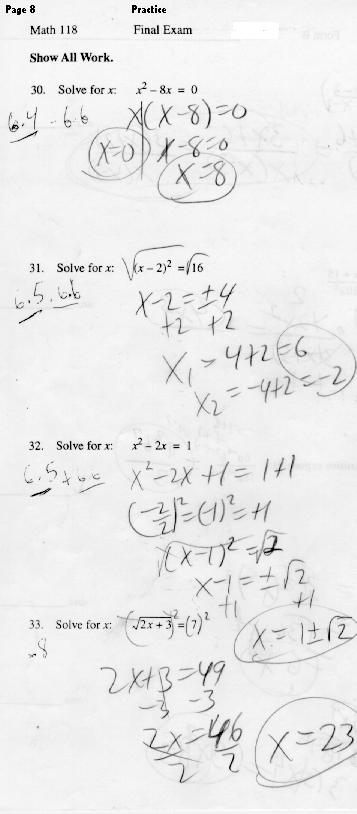 Page 8 Practice
Math 118 Final Exam
Show All Work.
30. Solve for x: x² – 8x = 0
6.4 - 6.6 x(x-8)=0
x=0 x-8=0
x=8
31. Solve for x: √(x – 2)² = √16
6.5, 6.6 x-2=±4
+2 +2
x₁ = 4+2=6
x₂ = -4+2=-2
32. Solve for x: x² – 2x = 1
6.5 + 6.6 x²-2x+1=1+1
(-2/2)²=(-1)²=+1
√(x-1)²=√2
x-1=±√2
+1 +1
x=1±√2
33. Solve for x: (√2x + 3)²=(7)²
2x+3=49
-3 -3
2x=46
2 2
x=23